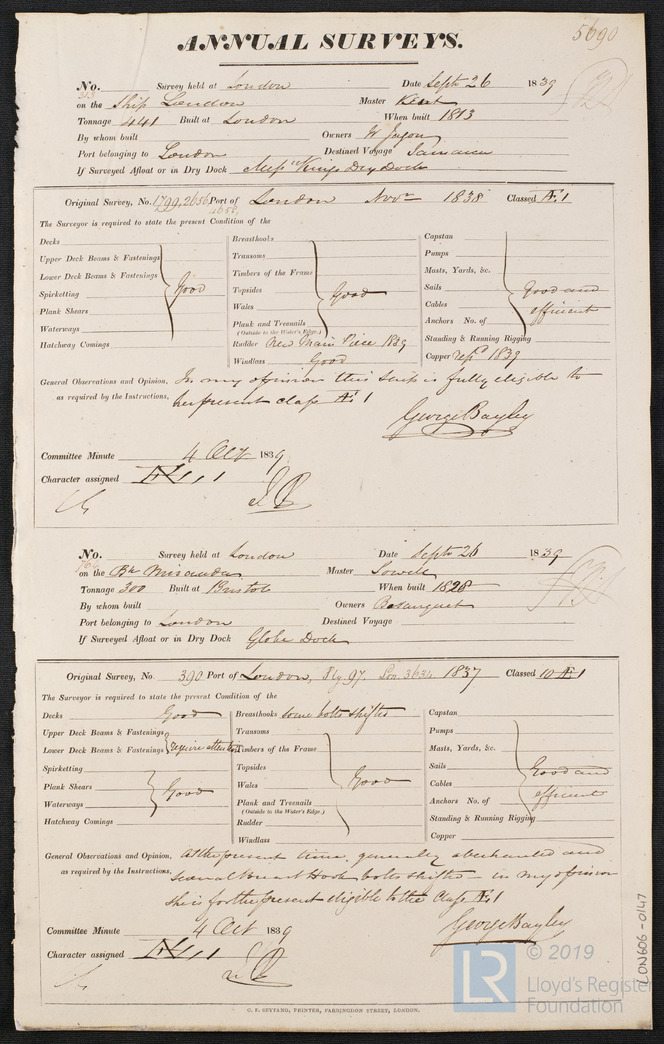 5690
ANNUAL SURVEYS.
No. 313 Survey held at London Date Septr 26 1839
on the Ship London Master Kent
Tonnage 441 Built at London When built 1813
By whom built Owners W Jegon
Port belonging to London Destined Voyage Jamaica
If Surveyed Afloat or in Dry Dock Dry Dock
Original Survey, No. 1799, 2656 Port of London Novr 1838 Classed Æ1
The Surveyor is required to state the present Condition of the
Decks
Upper Deck Beams & Fastenings
Lower Deck Beams & Fastenings
Spirketting
Plank Shears
Waterways
Good
Hatchway Comings
Breasthooks
Transoms
Timbers of the Frame
Topsides
Wales
Plank and Treenails
(Outside to the Water's Edge.)
Good
Rudder New Main Piece 1839
Windlass Good
Capstan
Pumps
Masts, Yards, &c.
Sails
Cables
Anchors No. of
Standing & Running Rigging
Good and
efficient
Copper repd 1839
General Observations and Opinion, In my opinion this Ship is fully eligible to
as required by the Instructions, her present class Æ1
George Bayley
Committee Minute 4 Oct 1839
Character assigned Æ 1
No. Survey held at London Date Septr 26 1839
on the Bk Misanda Master Sowell
Tonnage 300 Built at Bristol When built 1828
By whom built Owners Bosanquet
Port belonging to London Destined Voyage
If Surveyed Afloat or in Dry Dock Globe Dock
Original Survey, No. 390 Port of London, Ply 97. Lon. 3634 1837 Classed 10 Æ1
The Surveyor is required to state the present Condition of the
Decks Good
Upper Deck Beams & Fastenings
Lower Deck Beams & Fastenings
require attention
Spirketting
Plank Shears
Waterways
Good
Hatchway Comings
Breasthooks some bolts shifted
Transoms
Timbers of the Frame
Topsides
Wales
Plank and Treenails
(Outside to the Water's Edge.)
Good
Rudder
Windlass
Capstan
Pumps
Masts, Yards, &c.
Sails
Cables
Anchors No. of
Standing & Running Rigging
Good and
efficient
Copper
General Observations and Opinion, At the present time, generally and
as required by the Instructions, several Breast Hook bolts shifted - in my opinion
she is for the present eligible to the Class Æ1
George Bayley
Committee Minute 4 Oct 1839
Character assigned Æ 1
G. F. SEYFANG, PRINTER, FARRINGDON STREET, LONDON.
LON606-0147
© 2019
LR
Lloyd's Register
Foundation